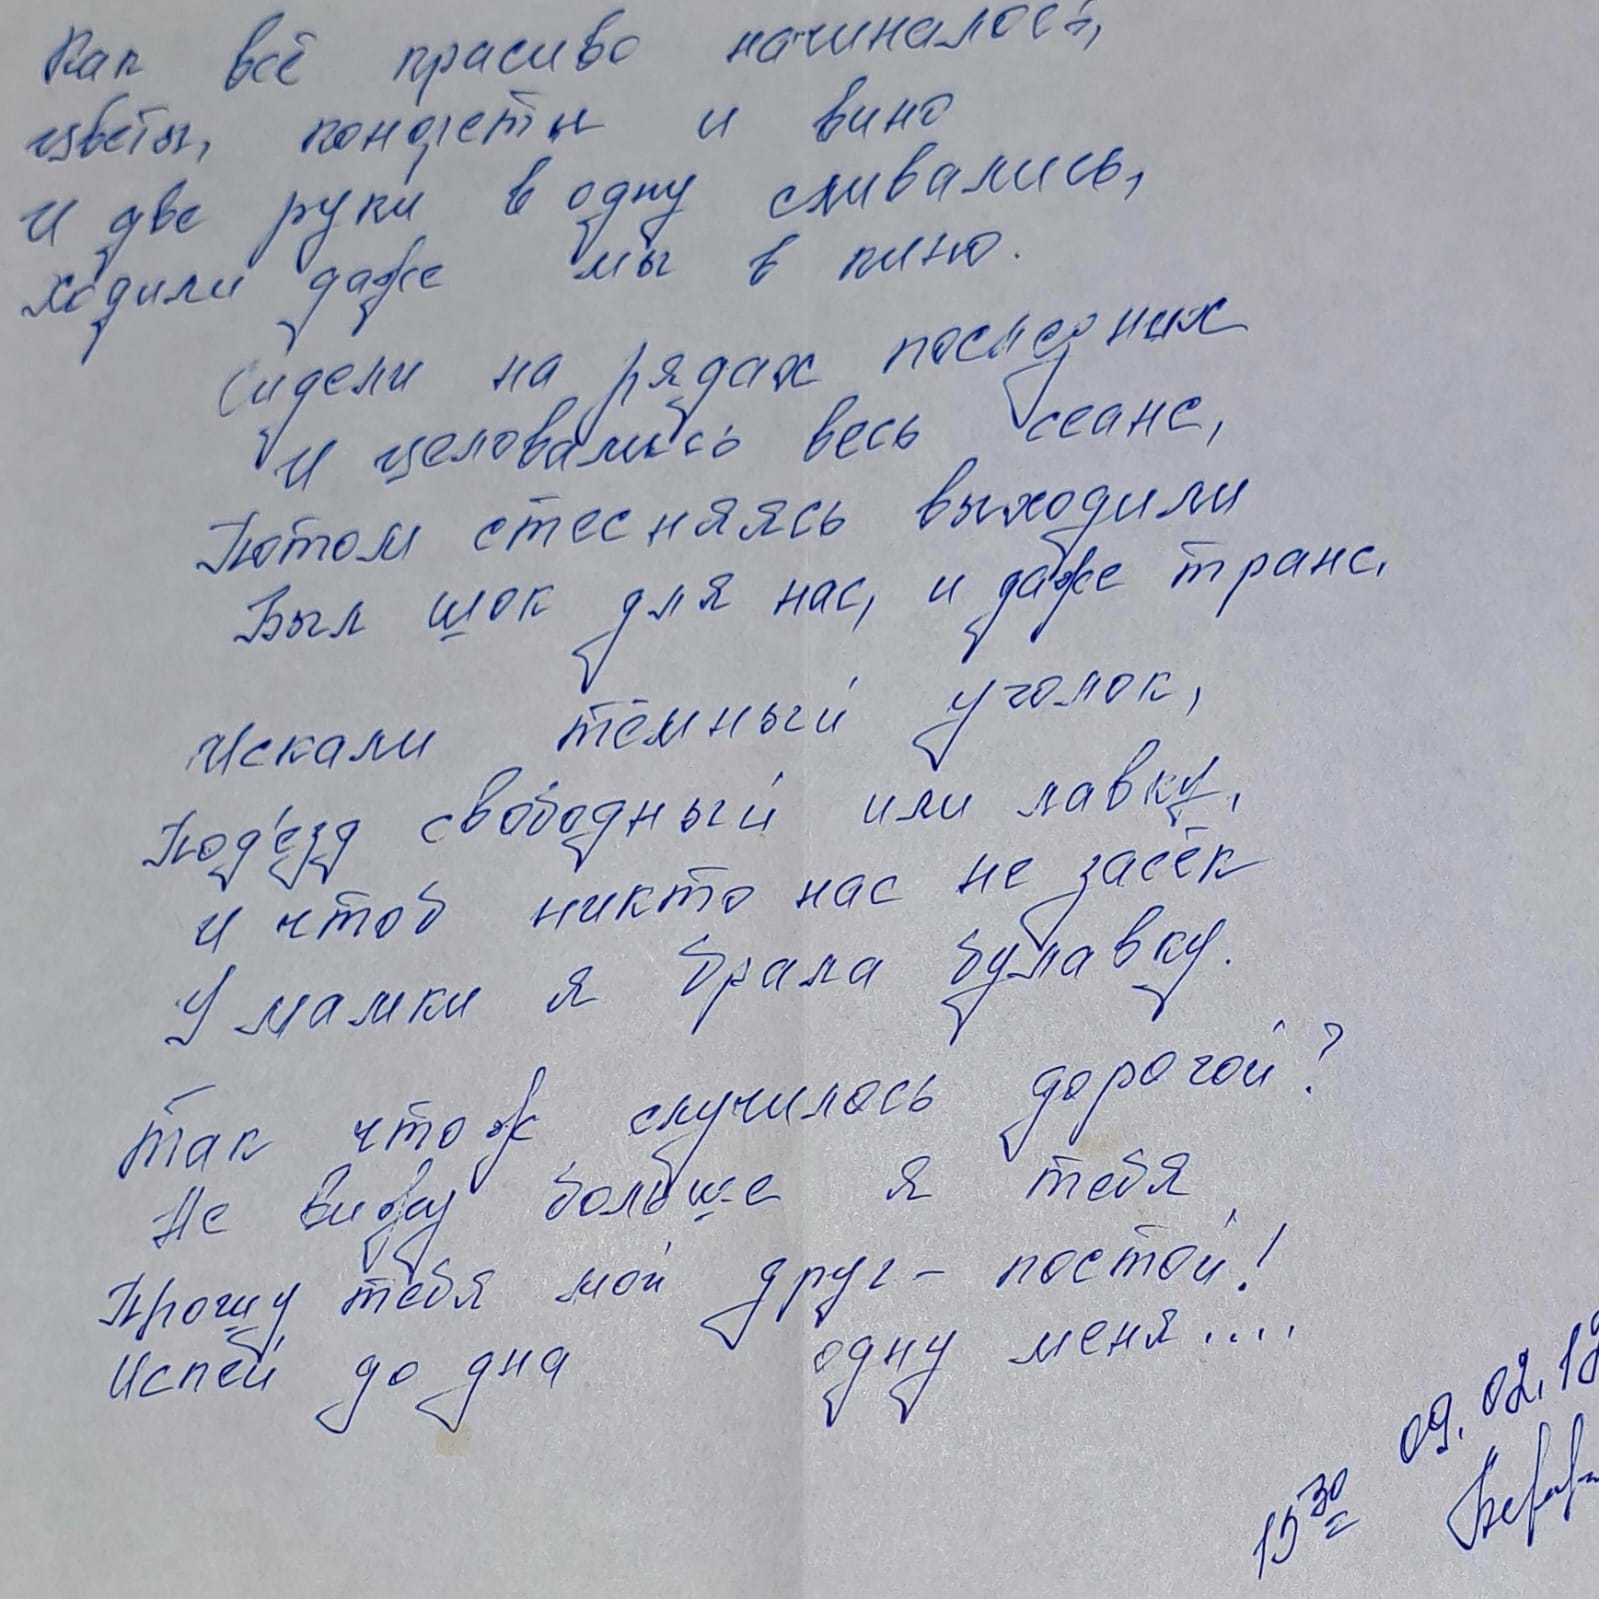 Как всё красиво начиналось,
цветы, конфеты и вино
И две руки в одну сливались,
ходили даже мы в кино.
Сидели на рядах последних
И целовались весь сеанс,
Потом стесняясь выходили
Был шок для нас, и даже транс.
Искали тёмный уголок,
Под'езд свободный или лавку,
И чтоб никто нас не засёк
У мамки я брала булавку.
Так что ж случилось дорогой?
Не вижу больше я тебя,
Прошу тебя мой друг - постой!
Испей до дна одну меня....
09.02.19
15 30